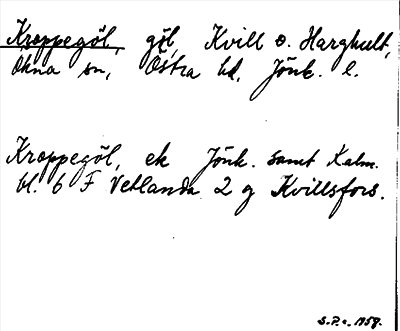 Kroppegöl, göl, Kvill o. Harghult,
Ökna sn, Östra hd, Jönk. l.
Kroppegöl, ek Jönk. samt Kalm.
bl. 6 F Vetlanda 2 g Kvillsfors.
S.P.c. 1959.